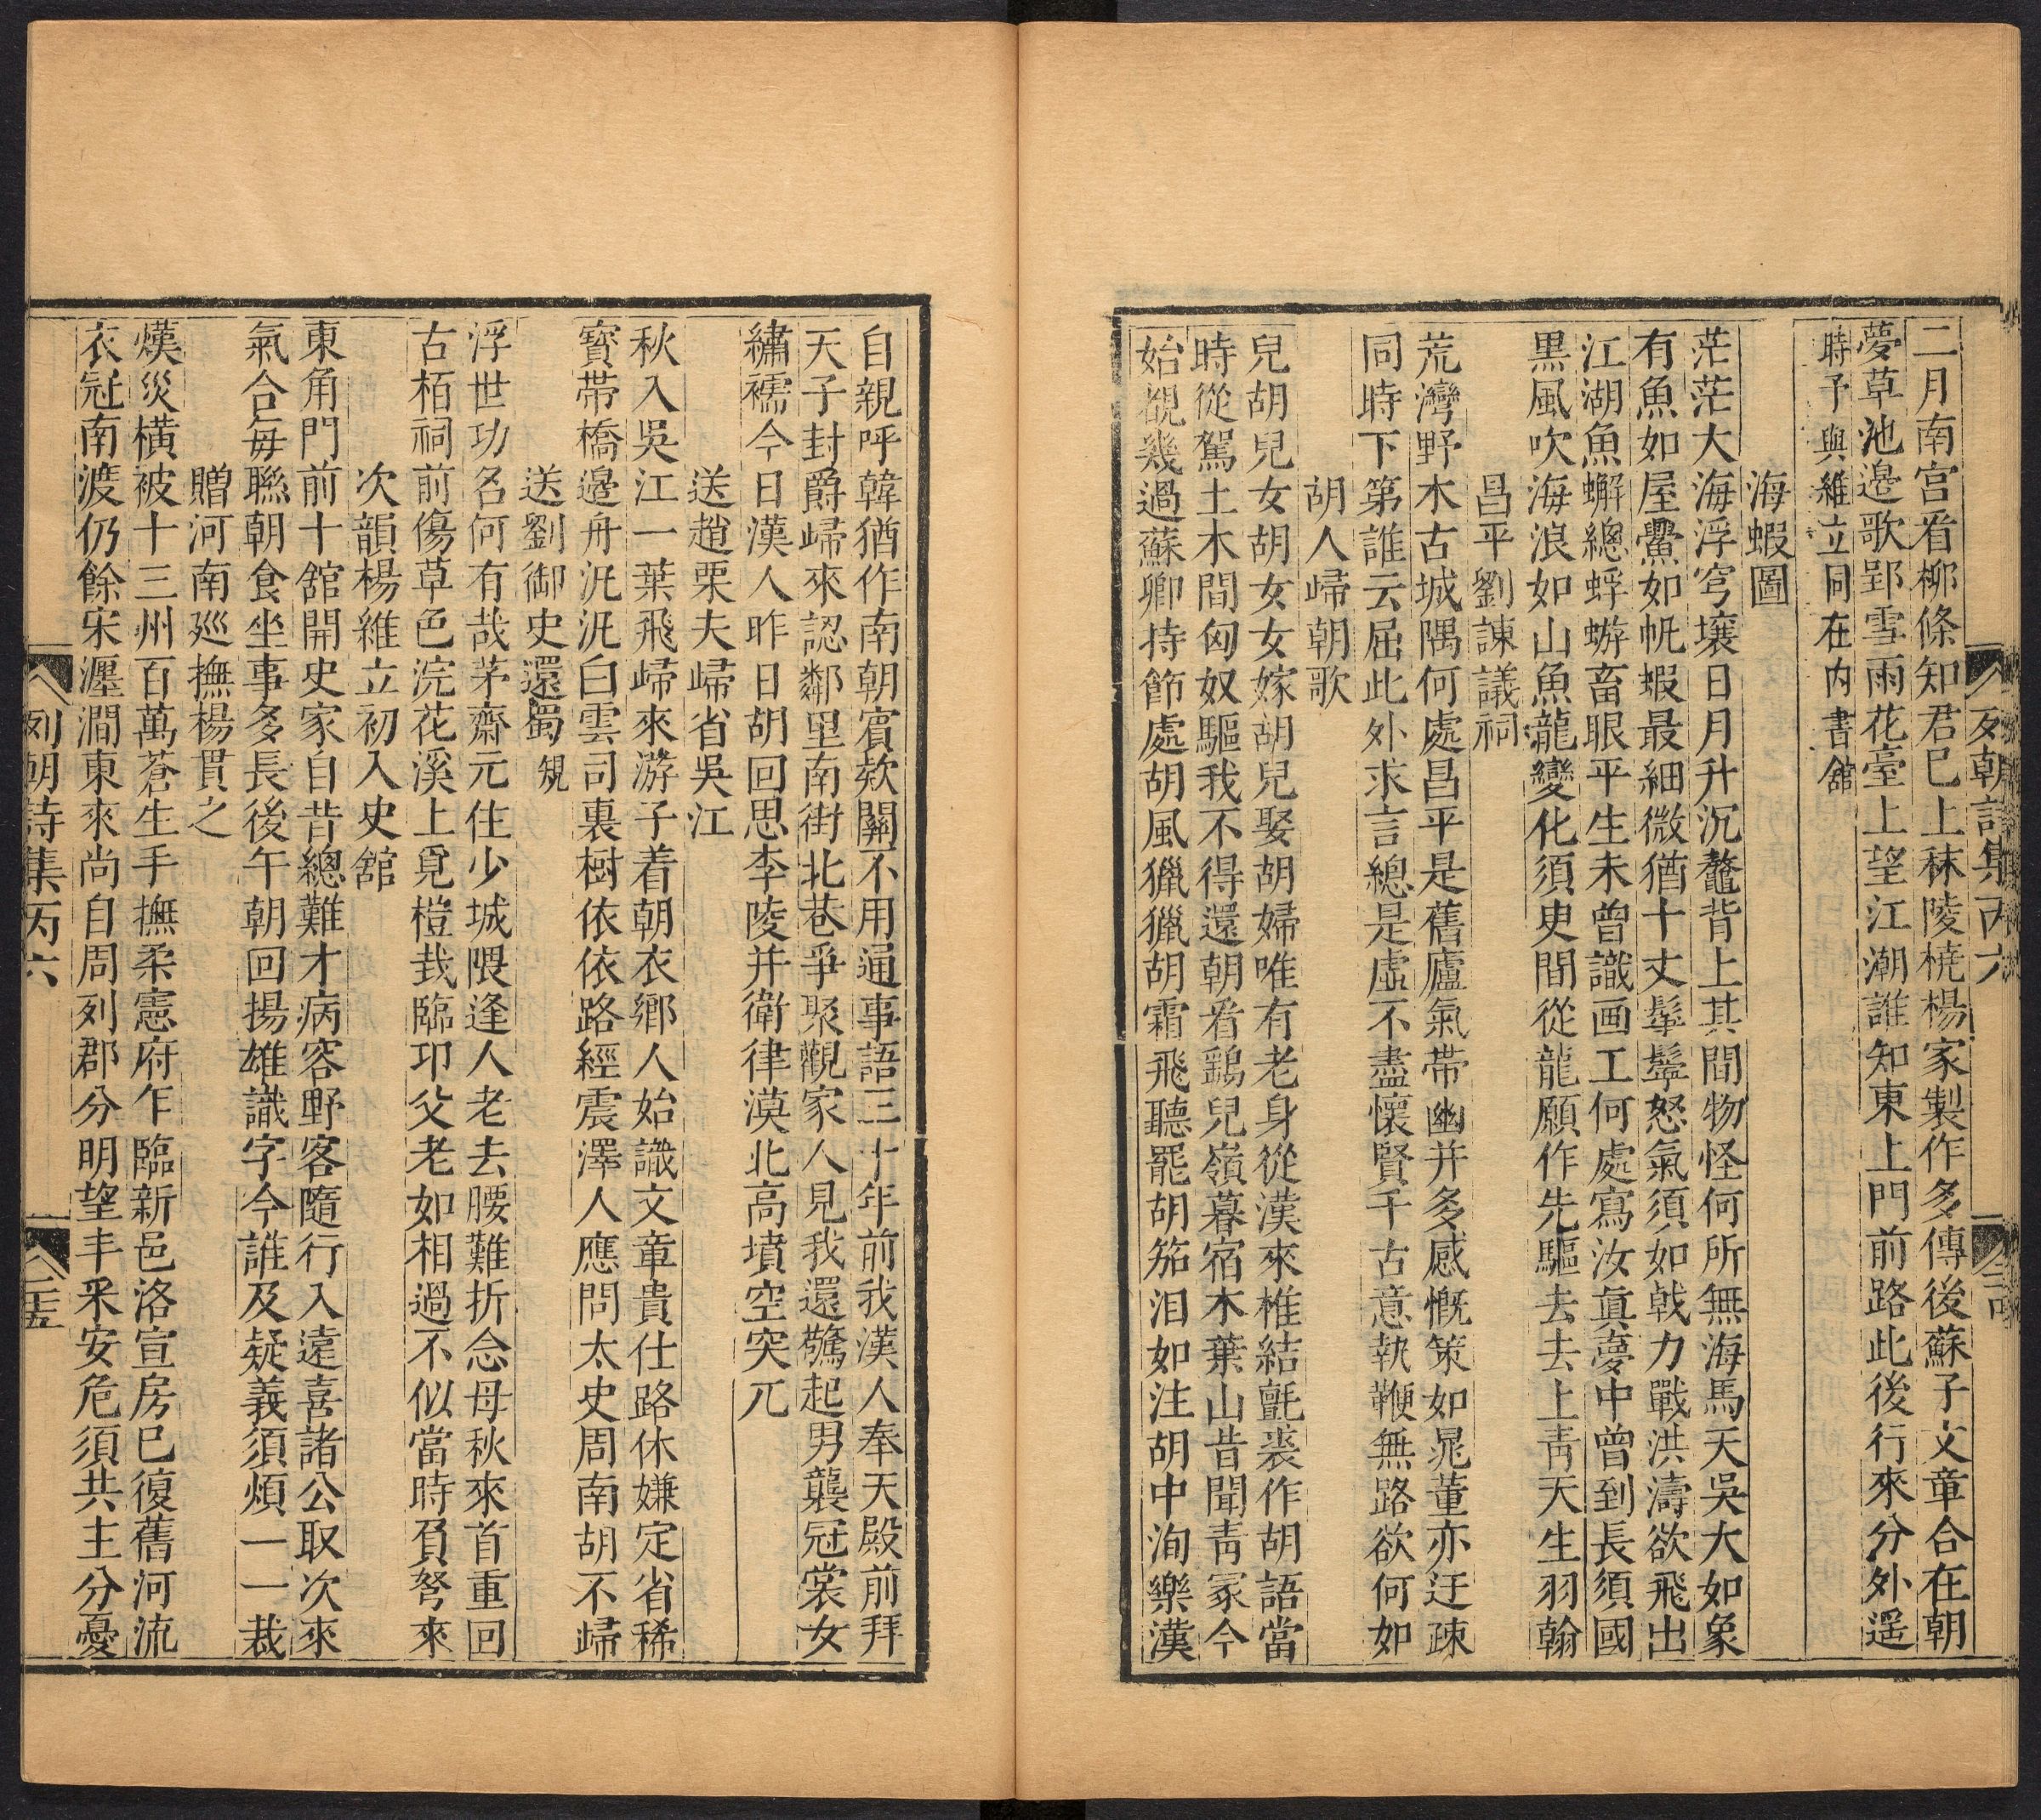 列朝詩集丙六
二月南宫看柳條知君巳上秣陵橈楊家製作多傳後蘇子文章合在朝
夢草池邉歌郢雪雨花臺上望江潮誰知東上門前路此後行來分外遥
時予與維立同在内書舘
海蝦圖
茫茫大海浮穹壤日月升沉鼇背上其間物怪何所無海馬天吳大如象
有魚如屋鱟如帆蝦最細微猶十丈髼鬆怒氣須如戟力戰洪濤欲飛出
江湖魚蠏總蜉蝣畜眼平生未曾識画工何處寫汝真夢中曾到長須國
黒風吹海浪如山魚龍變化須臾間從龍願作先驅去去上靑天生羽翰
昌平劉諫議祠
荒灣野木古城隅何處昌平是舊廬氣帶幽并多感慨策如晁董亦迂疎
同時下第誰云屈此外求言總是虛不盡懷賢千古意執鞭無路欲何如
胡人歸朝歌
兒胡兒女胡女女嫁胡兒娶胡婦唯有老身從漢來椎結氈裘作胡語當
時從駕土木間匈奴驅我不得還朝看鷄兒嶺暮宿木葉山昔聞靑冢今
始覩幾過蘇卿持節處胡風獵獵胡霜飛聽罷胡笳泪如注胡中洵樂漢
自親呼韓猶作南朝賓欵關不用通事語三十年前我漢人奉天殿前拜
天子封爵歸來認鄰里南街北巷爭聚觀家人見我還驚起男襲冠裳女
繡襦今日漢人昨日胡回思李陵并衛律漠北高墳空突兀
送趙栗夫歸省吳江
秋入吳江一葉飛歸來游子着朝衣鄉人始識文章貴仕路休嫌定省稀
寳帶橋邉舟汎汎白雲司裏樹依依路經震澤人應問太史周南胡不歸
送劉御史還蜀 規
浮世功名何有哉茅齋元住少城隈逢人老去腰難折念母秋來首重回
古栢祠前傷草色浣花溪上覓榿栽臨卭父老如相過不似當時負弩來
次韻楊維立初入史舘
東角門前十舘開史家自昔總難才病容野客隨行入遠喜諸公取次來
氣合每聯朝食坐事多長後午朝回揚雄識字今誰及疑義須煩一一裁
贈河南廵撫楊貫之
熯災横被十三州百萬蒼生手撫柔憲府乍臨新邑洛宣房巳復舊河流
衣冠南渡仍餘宋瀍澗東來尚自周列郡分明望丰采安危須共主分憂
列朝詩集丙六
二五